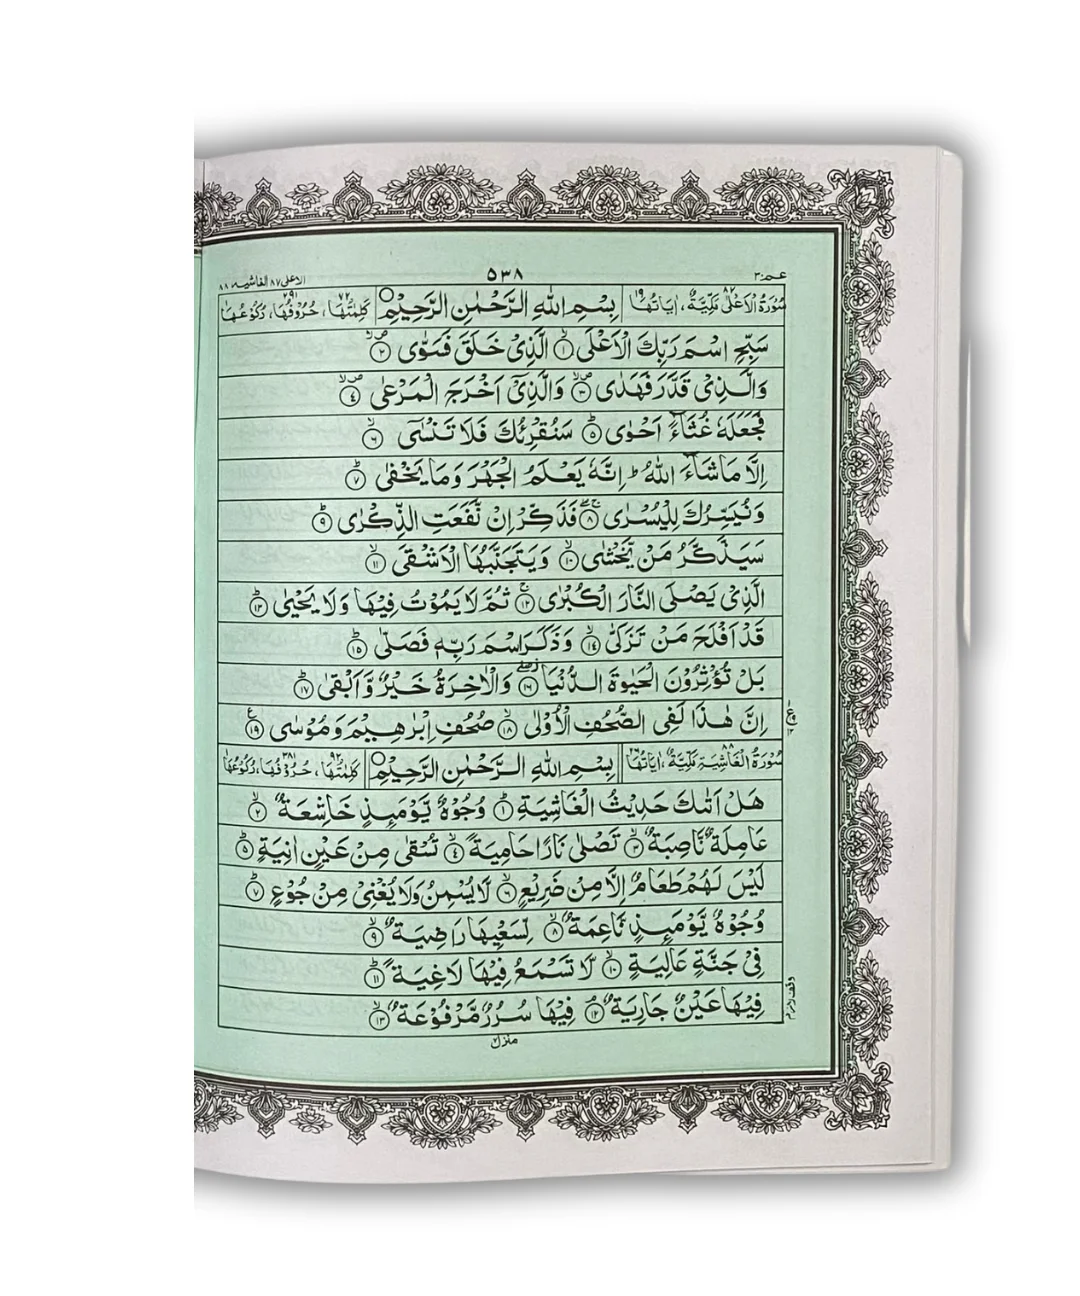 عمّ ٣٠
٥٣٨
الاعلى ٨٧ الغاشية ٨٨
سُوْرَةُ الْاَعْلٰى مَكِّيَّةٌ، اٰيَاتُهَا ١٩ بِسْمِ اللّٰهِ الرَّحْمٰنِ الرَّحِيْمِ كَلِمٰتُهَا ٧٢، حُرُوْفُهَا ٢٩١، رُكُوْعُهَا ١
سَبِّحِ اسْمَ رَبِّكَ الْاَعْلَى ۙ‏﴿۱﴾ الَّذِىْ خَلَقَ فَسَوّٰى ۙ‏﴿۲﴾
وَالَّذِىْ قَدَّرَ فَهَدٰى ۙ‏﴿۳﴾ وَالَّذِىْۤ اَخْرَجَ الْمَرْعٰى ۙ‏﴿۴﴾
فَجَعَلَهٗ غُثَآءً اَحْوٰىؕ‏﴿۵﴾ سَنُقْرِئُكَ فَلَا تَنْسٰٓى ۙ‏﴿۶﴾
اِلَّا مَا شَآءَ اللّٰهُ‌ؕ اِنَّهٗ يَعْلَمُ الْجَهْرَ وَمَا يَخْفٰىؕ‏﴿۷﴾
وَنُيَسِّرُكَ لِلْيُسْرٰى ۖۚ‏﴿۸﴾ فَذَكِّرْ اِنْ نَّفَعَتِ الذِّكْرٰىؕ‏﴿۹﴾
سَيَذَّكَّرُ مَنْ يَّخْشٰى ۙ‏﴿۱۰﴾ وَيَتَجَنَّبُهَا الْاَشْقَى ۙ‏﴿۱۱﴾
الَّذِىْ يَصْلَى النَّارَ الْكُبْرٰى‌ۚ‏﴿۱۲﴾ ثُمَّ لَا يَمُوْتُ فِيْهَا وَلَا يَحْيٰىؕ‏﴿۱۳﴾
قَدْ اَفْلَحَ مَنْ تَزَكّٰى ۙ‏﴿۱۴﴾ وَذَكَرَ اسْمَ رَبِّهٖ فَصَلّٰى‌ؕ‏﴿۱۵﴾
بَلْ تُؤْثِرُوْنَ الْحَيٰوةَ الدُّنْيَا ۖ‏﴿۱۶﴾ وَالْاٰخِرَةُ خَيْرٌ وَّاَبْقٰىؕ‏﴿۱۷﴾
اِنَّ هٰذَا لَفِى الصُّحُفِ الْاُوْلٰى ۙ‏﴿۱۸﴾ صُحُفِ اِبْرٰهِيْمَ وَمُوْسٰى‏﴿۱۹﴾ ع
سُوْرَةُ الْغَاشِيَةِ مَكِّيَّةٌ، اٰيَاتُهَا ٢٦ بِسْمِ اللّٰهِ الرَّحْمٰنِ الرَّحِيْمِ كَلِمٰتُهَا ٩٢، حُرُوْفُهَا ٣٨١، رُكُوْعُهَا ١
هَلْ اَتٰٮكَ حَدِيْثُ الْغَاشِيَةِؕ‏﴿۱﴾ وُجُوْهٌ يَّوْمَٮِٕذٍ خَاشِعَةٌ ۙ‏﴿۲﴾
عَامِلَةٌ نَّاصِبَةٌ ۙ‏﴿۳﴾ تَصْلٰى نَارًا حَامِيَةً ۙ‏﴿۴﴾ تُسْقٰى مِنْ عَيْنٍ اٰنِيَةٍؕ‏﴿۵﴾
لَيْسَ لَهُمْ طَعَامٌ اِلَّا مِنْ ضَرِيْعٍۙ‏﴿۶﴾ لَّا يُسْمِنُ وَلَا يُغْنِىْ مِنْ جُوْعٍؕ‏﴿۷﴾
وُجُوْهٌ يَّوْمَٮِٕذٍ نَّاعِمَةٌ ۙ‏﴿۸﴾ لِّسَعْيِهَا رَاضِيَةٌ ۙ‏﴿۹﴾
فِىْ جَنَّةٍ عَالِيَةٍۙ‏﴿۱۰﴾ لَّا تَسْمَعُ فِيْهَا لَاغِيَةًؕ‏﴿۱۱﴾
فِيْهَا عَيْنٌ جَارِيَةٌ‌ۘ‏﴿۱۲﴾ فِيْهَا سُرُرٌ مَّرْفُوْعَةٌ ۙ‏﴿۱۳﴾
وقف لازم
منزل